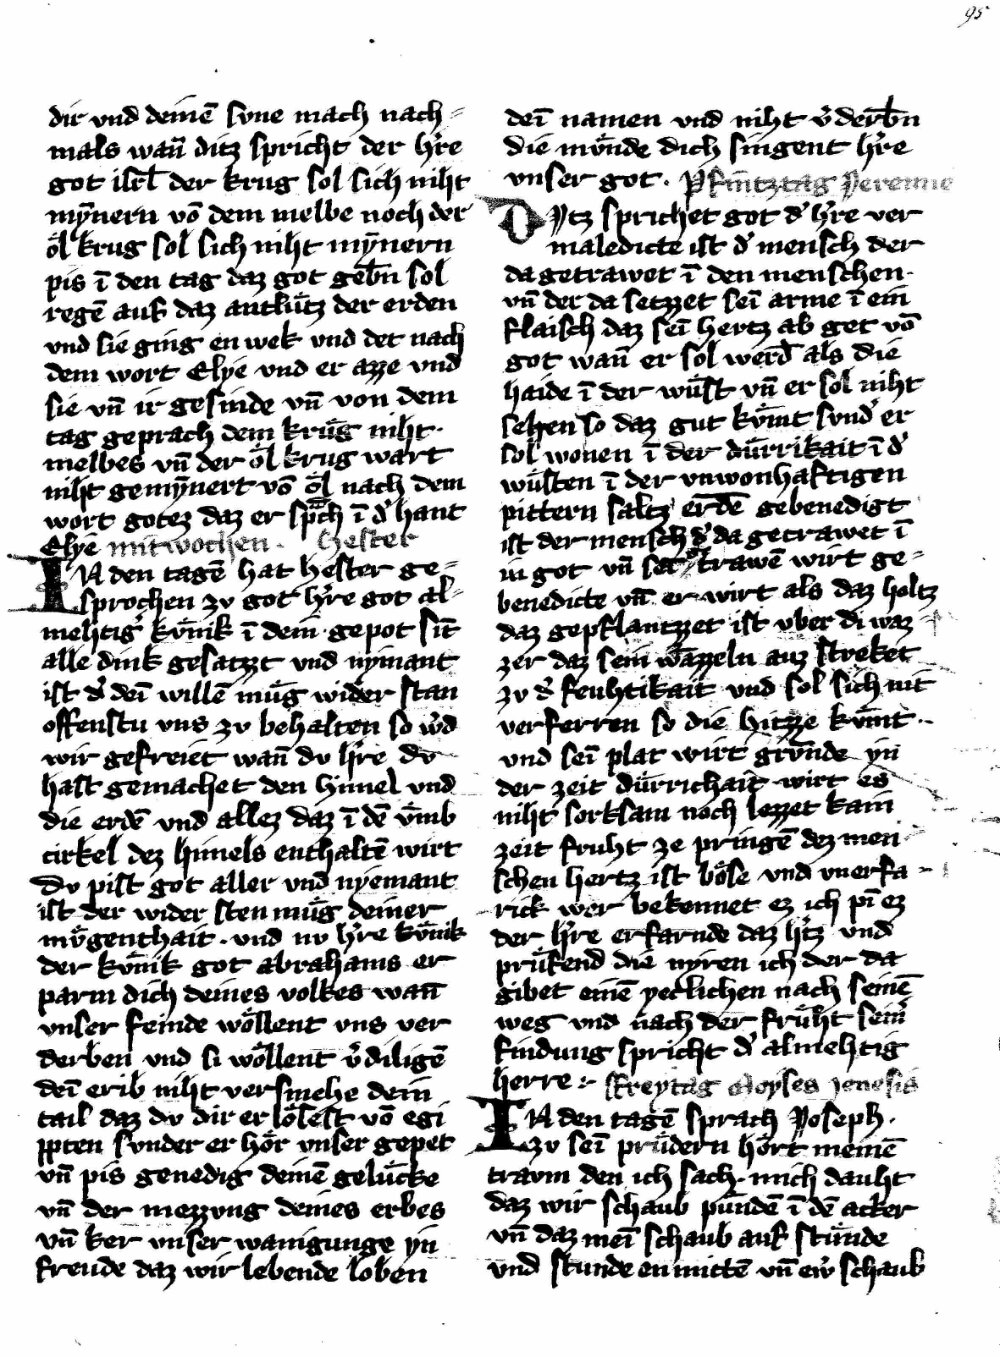 95
dir vnd deinē svne mach nach=
mals wañ ditz spricht der hʼre
got isrl̄ der krug sol sich niht
mÿnern võ dem melbe noch der
ol̊ krug sol sich niht mÿnern
pis ī den tag daz got gebn̄ sol
regē auf daz antlütz der erden
vnd sie ging en wek vnd det nach
dem wort Elye vnd er azze vnd
sie vñ ir gesinde vñ von dem
tag geprach dem krůg niht·
melbes vñ der ol̊ krug wart
niht gemÿnert võ ol̊ nach dem
wort gotez daz er spᵃch ī dʼ hant
Elye mitwochen · Hester
IN den tagē hat hester ge=
sprochen zv got hʼre got al=
mehtigʼ kv̊nik ī dein gepot sīt
alle dink gesatzt vnd nyimant
ist dʼ deī willē můg wider stan
offenstu vns zv behalten so wʼd
wir gefreiet wañ dv hʼre dv
hast gemachet den himel vnd
die erdē vnd allez daz ī dē v̊mb
cirkel dez himels enthaltē wirt
Dv pist got aller vnd nyemant
ist der wider sten můg deiner
mo̊genthait · vnd nv hʼre kv̊nik
der kv̊nik got abrahams er
parm dich deines volkes wañ
vnser feinde wo̊llent vns ver
derben vnd si wo̊llent vʼdiligē
deī erib niht versmehe dein
tail daz dv dir er lo̊lest võ egi
ppten svnder er ho̊r vnser gepet
vñ pis genedig deinē gelücke
vñ der mezzvng deines erbes
vñ ker vnser wanigunge yn
freude daz wir lebende loben
deī namen vnd niht vʼderbn̄
die mv̊nde dich singent hʼre
vnser got · Pfintztag Jeremie
DItz sprichet got dʼ hʼre ver
maledicte ist dʼ mensch der
da getrawet ī den menschen·
vñ der da setzzet seī arme ī ein
flaisch daz seī hertz ab get võ
got wañ er sol werdʼ als die
haide ī der wůst vñ er sol niht
sehen so daz gut kv̊mt svndʼ er
sol wonen ī der důrrikait ī dʼ
wůsten ī der vnwonhaftigen
pittern saltz erdē gebenedigt
ist der mensch dʼ da getrawet ī
in got vñ sein trawē wirt ge=
benedicte vñ er wirt als daz holtz
daz gepflantzzet ist vber di waz=
zer daz sein wazzeln auz streket
zv dʼ feuhtikait vnd sol sich nit
verferren so die hitzze kv̊mt·
vnd seī plat wirt grv̊nde yn
der zeit důrrichait wirt es
niht sorksam noch lezzet kain
zeit fruht ze pringē dez men
schen hertz ist bo̊se vnd vnerfa=
rick wer bekennet ez ich pī ez
der hʼre erfarnde daz hʼtz vnd
průfend die nyren ich der da
gibet einē yetlichen nach seinē
weg vnd nach der frůht seinʼ
findung spricht dʼ almehtig
herre · Freytag Moyses jenesis
IN den tagē sprach Joseph·
zv seī průdern ho̊rt meinē
travm den ich sach· mich dauht
daz wir schaub pundē ī dē acker
vñ daz meī schaub auf stůnde
vnd stunde en mittē vñ ewʼ schaub